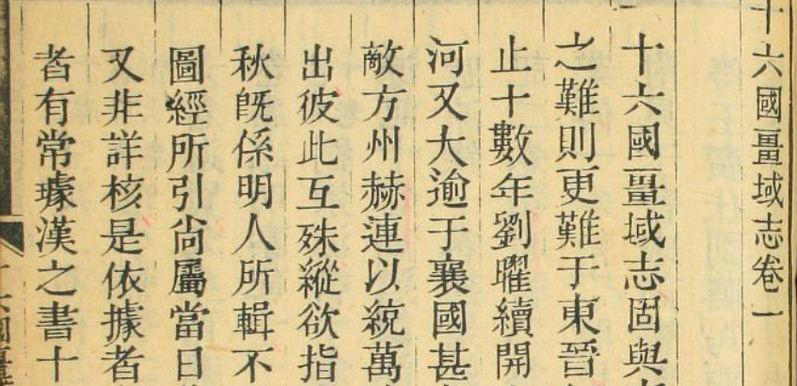 十六國畺域志卷一
十六國畺域志固與
之難則更難于東晉
止十數年劉曜續開
河又大逾于襄國甚
敵方州赫連以統萬
出彼此互殊縱欲指
秋既係明人所輯不
圖經所引尙屬當日
又非詳核是依據者
者有常璩漢之書十